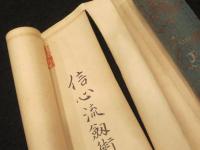 信心流剱術